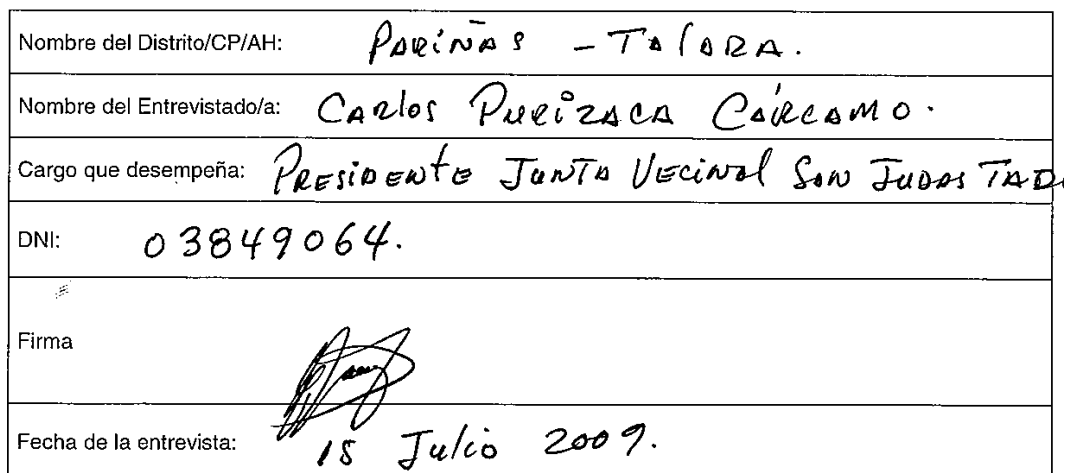 Nombre del Distrito/CP/AH: PARIÑAS - TALARA.
Nombre del Entrevistado/a: CARLOS PURIZACA CÁRCAMO.
Cargo que desempeña: PRESIDENTE JUNTA VECINAL SAN JUDAS TAD
DNI: 03849064.
Firma
Fecha de la entrevista: 15 Julio 2009.